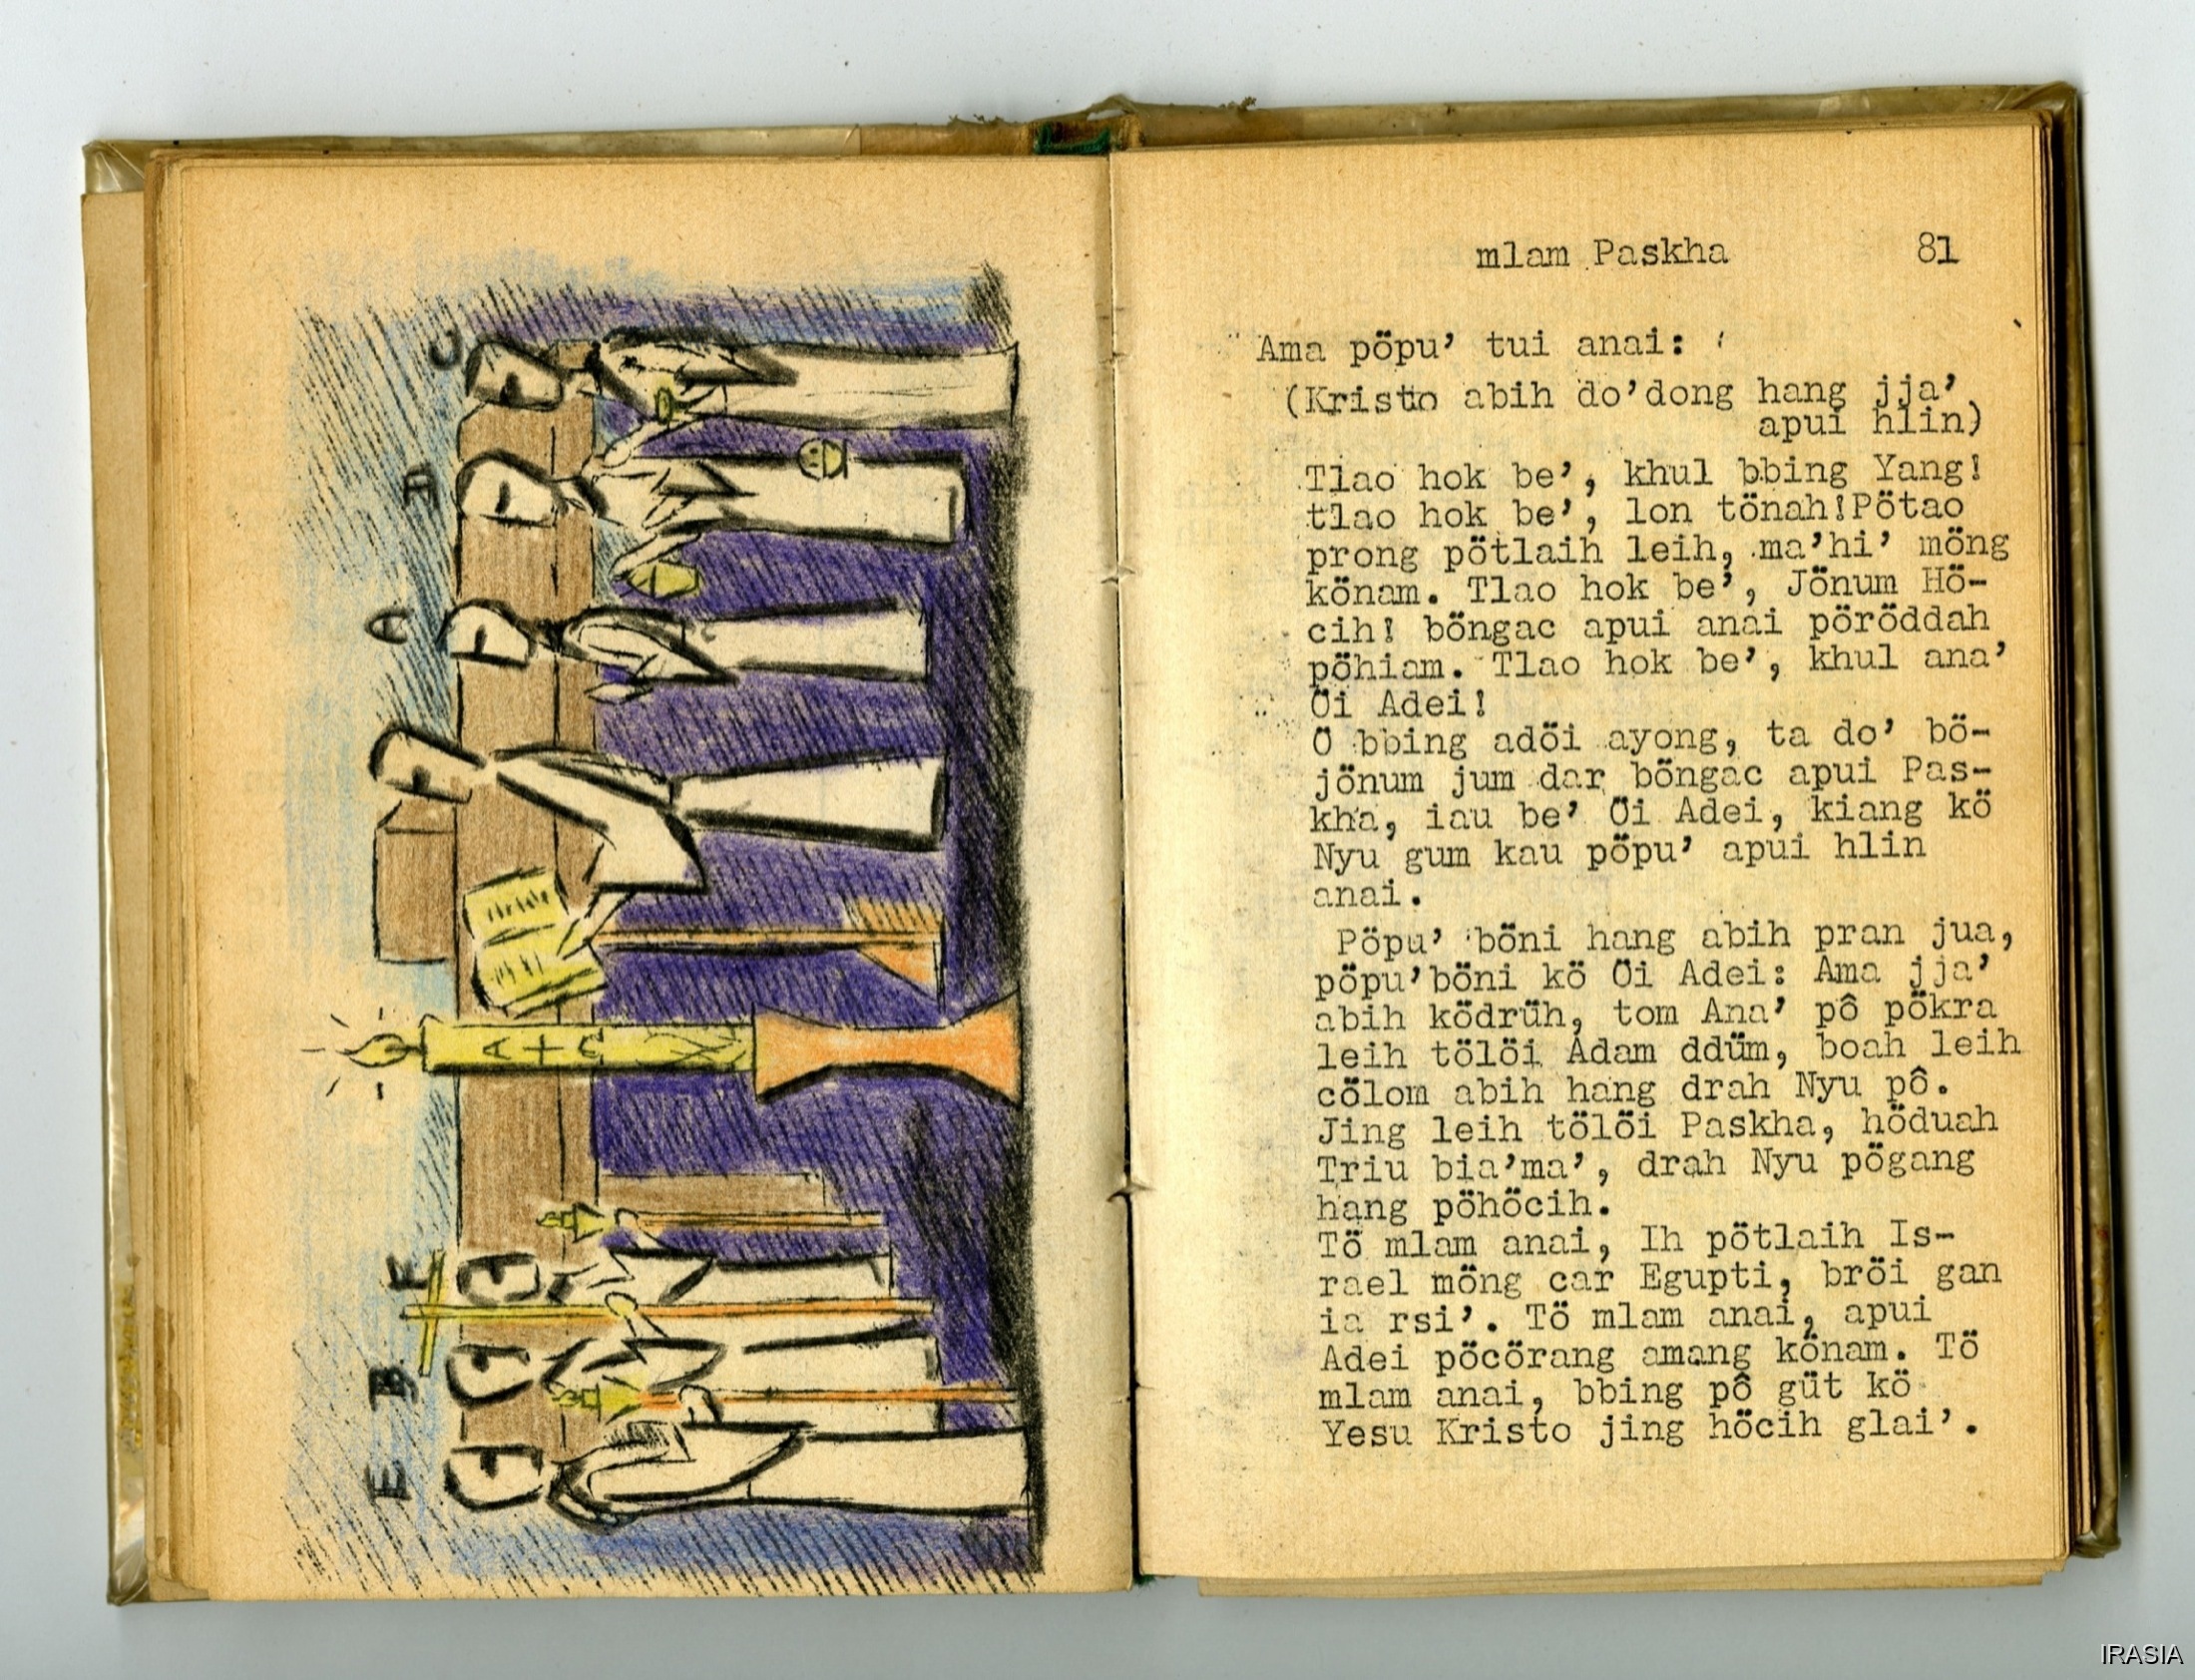 C
D
A
A + Ω
F
B
E
mlam Paskha 81
Ama pöpu’ tui anai:
(Kristo abih do’dong hang jja’
apui hlin)
Tlao hok be’, khul bbing Yang!
tlao hok be’, lon tönah!Pötao
prong pötlaih leih, ma’hi’ möng
könam. Tlao hok be’, Jönum Hö-
cih! böngac apui anai pöröddah
pöhiam. Tlao hok be’, khul ana’
Öi Adei!
Ö bbing adöi ayong, ta do’ bö-
jönum jum dar böngac apui Pas-
kha, iau be’ Öi Adei, kiang kö
Nyu gum kau pöpu’ apui hlin
anai.
Pöpu’ böni hang abih pran jua,
pöpu’böni kö Öi Adei: Ama jja’
abih ködrüh, tom Ana’ pô pökra
leih tölöi Adam ddüm, boah leih
cölom abih hang drah Nyu pô.
Jing leih tölöi Paskha, höduah
Triu bia’ma’, drah Nyu pögang
hang pöhöcih.
Tö mlam anai, Ih pötlaih Is-
rael möng car Egupti, bröi gan
ia rsi’. Tö mlam anai, apui
Adei pöcörang amang könam. Tö
mlam anai, bbing pô güt kö
Yesu Kristo jing höcih glai’.
IRASIA